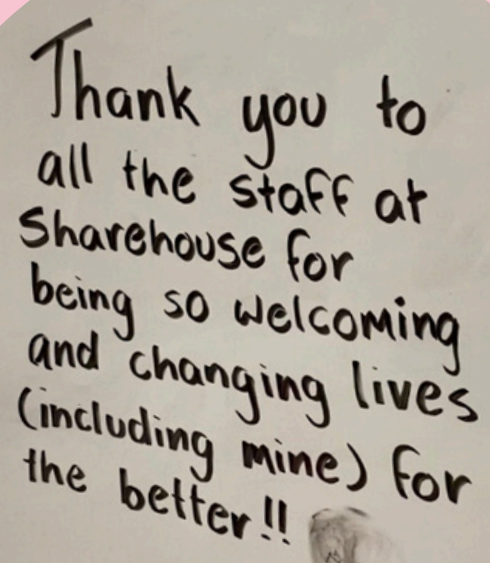 Thank you to
all the staff at
Sharehouse for
being so welcoming
and changing lives
(including mine) for
the better!!